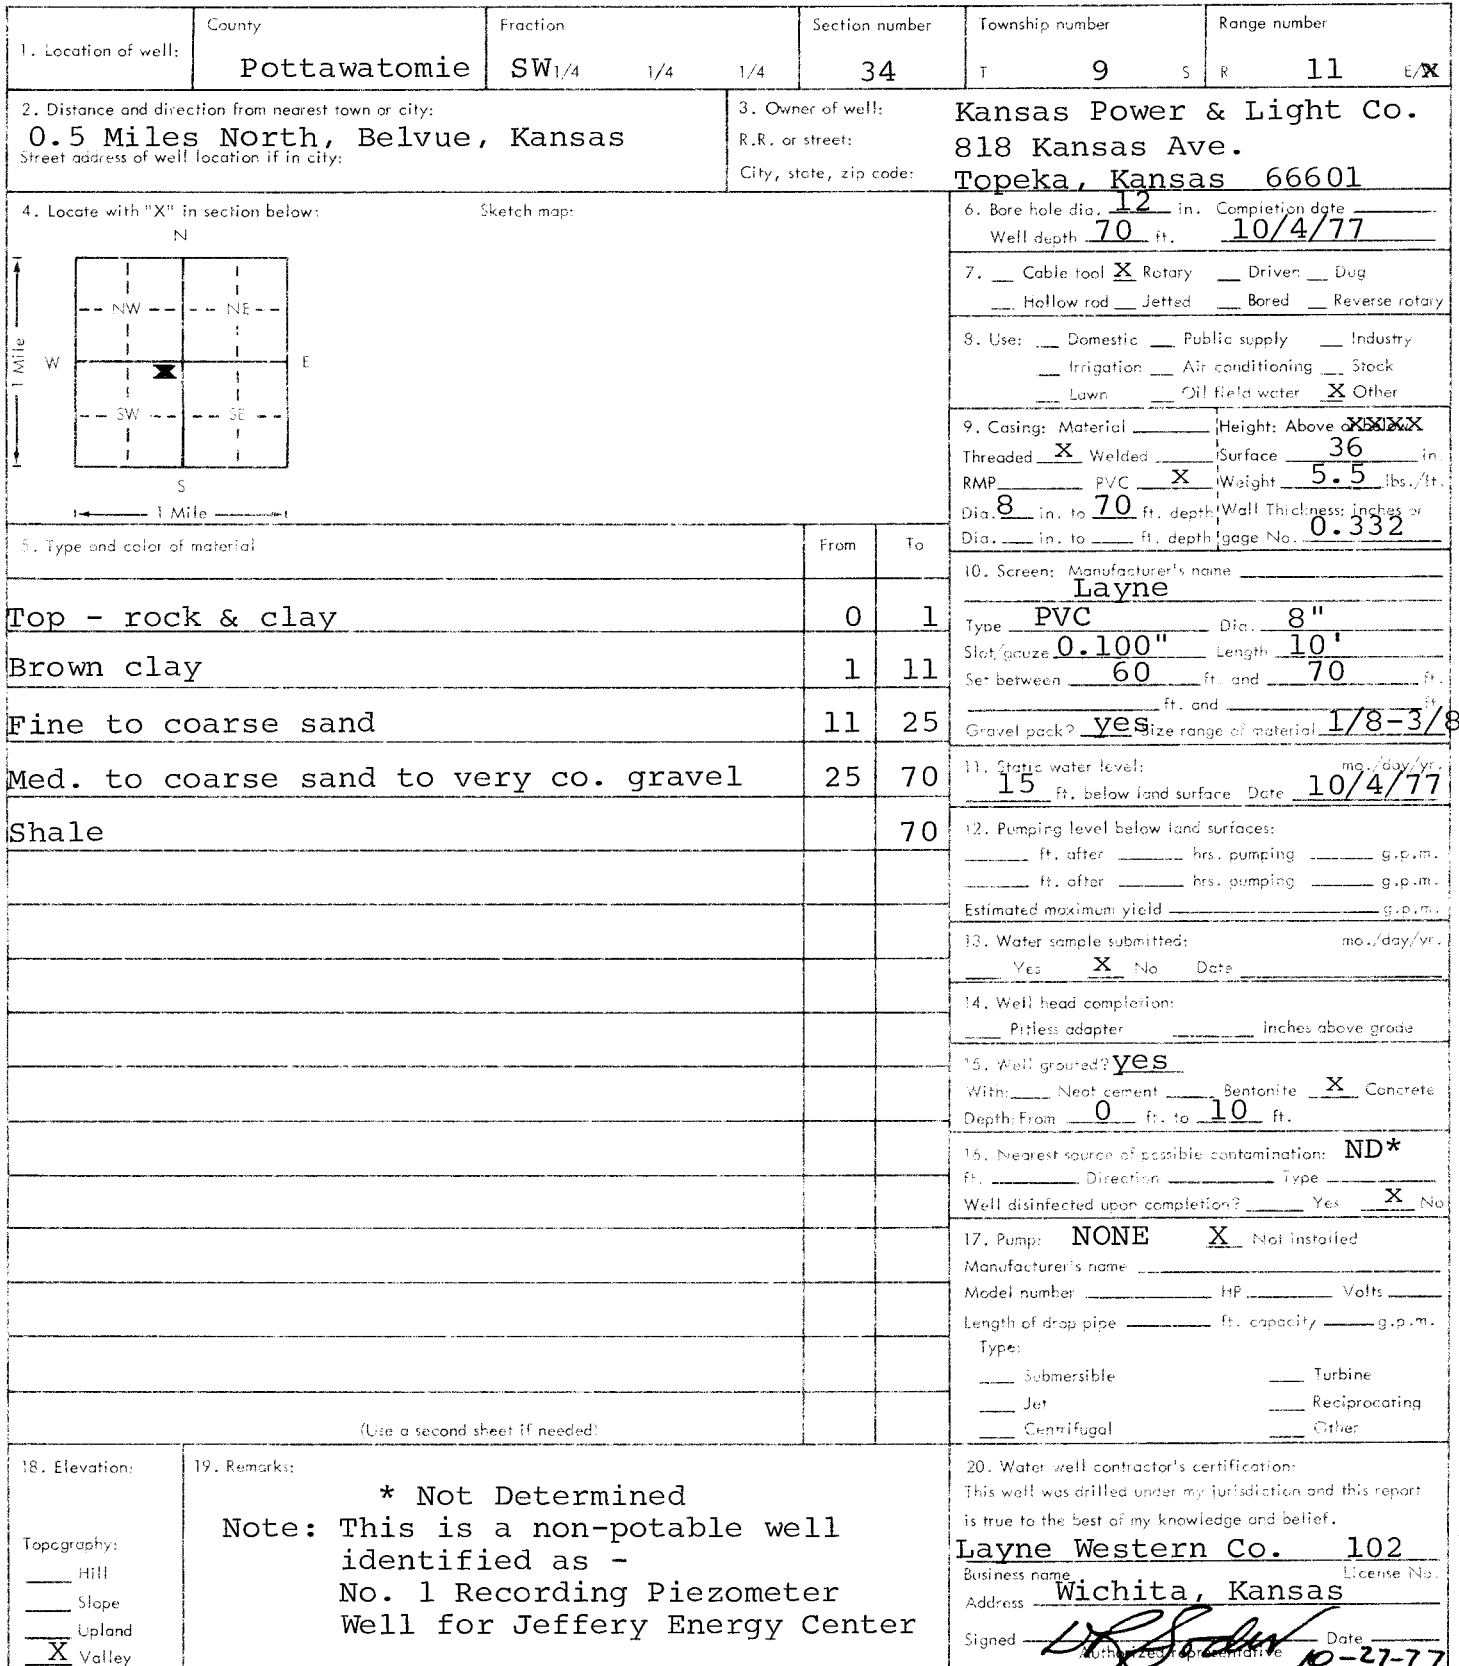 1. Location of well: County Fraction Section number Township number Range number
Pottawatomie SW 1/4 1/4 1/4 34 T 9 S R 11 E/W
2. Distance and direction from nearest town or city:
0.5 Miles North, Belvue, Kansas
Street address of well location if in city:
3. Owner of well: Kansas Power & Light Co.
R.R. or street: 818 Kansas Ave.
City, state, zip code: Topeka, Kansas 66601
4. Locate with "X" in section below: Sketch map:
N
NW NE
W E
SW SE
S
1 Mile
1 Mile
5. Type and color of material From To
Top - rock & clay 0 1
Brown clay 1 11
Fine to coarse sand 11 25
Med. to coarse sand to very co. gravel 25 70
Shale 70
(Use a second sheet if needed)
6. Bore hole dia. 12 in. Completion date
Well depth 70 ft. 10/4/77
7. Cable tool X Rotary Driven Dug
Hollow rod Jetted Bored Reverse rotary
8. Use: Domestic Public supply Industry
Irrigation Air conditioning Stock
Lawn Oil field water X Other
9. Casing: Material Height: Above or below
Threaded X Welded Surface 36 in.
RMP PVC X Weight 5.5 lbs./ft.
Dia. 8 in. to 70 ft. depth Wall Thickness: inches or
Dia. in. to ft. depth gage No. 0.332
10. Screen: Manufacturer's name
Layne
Type PVC Dia. 8"
Slot/gauze 0.100" Length 10'
Set between 60 ft. and 70 ft.
ft. and ft.
Gravel pack? yes Size range of material 1/8-3/8
11. Static water level: mo./day/yr.
15 ft. below land surface Date 10/4/77
12. Pumping level below land surfaces:
ft. after hrs. pumping g.p.m.
ft. after hrs. pumping g.p.m.
Estimated maximum yield g.p.m.
13. Water sample submitted: mo./day/yr.
Yes X No Date
14. Well head completion:
Pitless adapter inches above grade
15. Well grouted? yes
With: Neat cement Bentonite X Concrete
Depth: From 0 ft. to 10 ft.
16. Nearest source of possible contamination: ND*
ft. Direction Type
Well disinfected upon completion? Yes X No
17. Pump: NONE X Not installed
Manufacturer's name
Model number HP Volts
Length of drop pipe ft. capacity g.p.m.
Type:
Submersible Turbine
Jet Reciprocating
Centrifugal Other
18. Elevation:
Topography:
Hill
Slope
Upland
X Valley
19. Remarks:
* Not Determined
Note: This is a non-potable well
identified as -
No. 1 Recording Piezometer
Well for Jeffery Energy Center
20. Water well contractor's certification:
This well was drilled under my jurisdiction and this report
is true to the best of my knowledge and belief.
Layne Western Co. 102
Business name License No.
Address Wichita, Kansas
Signed Date 10-27-77
Authorized representative